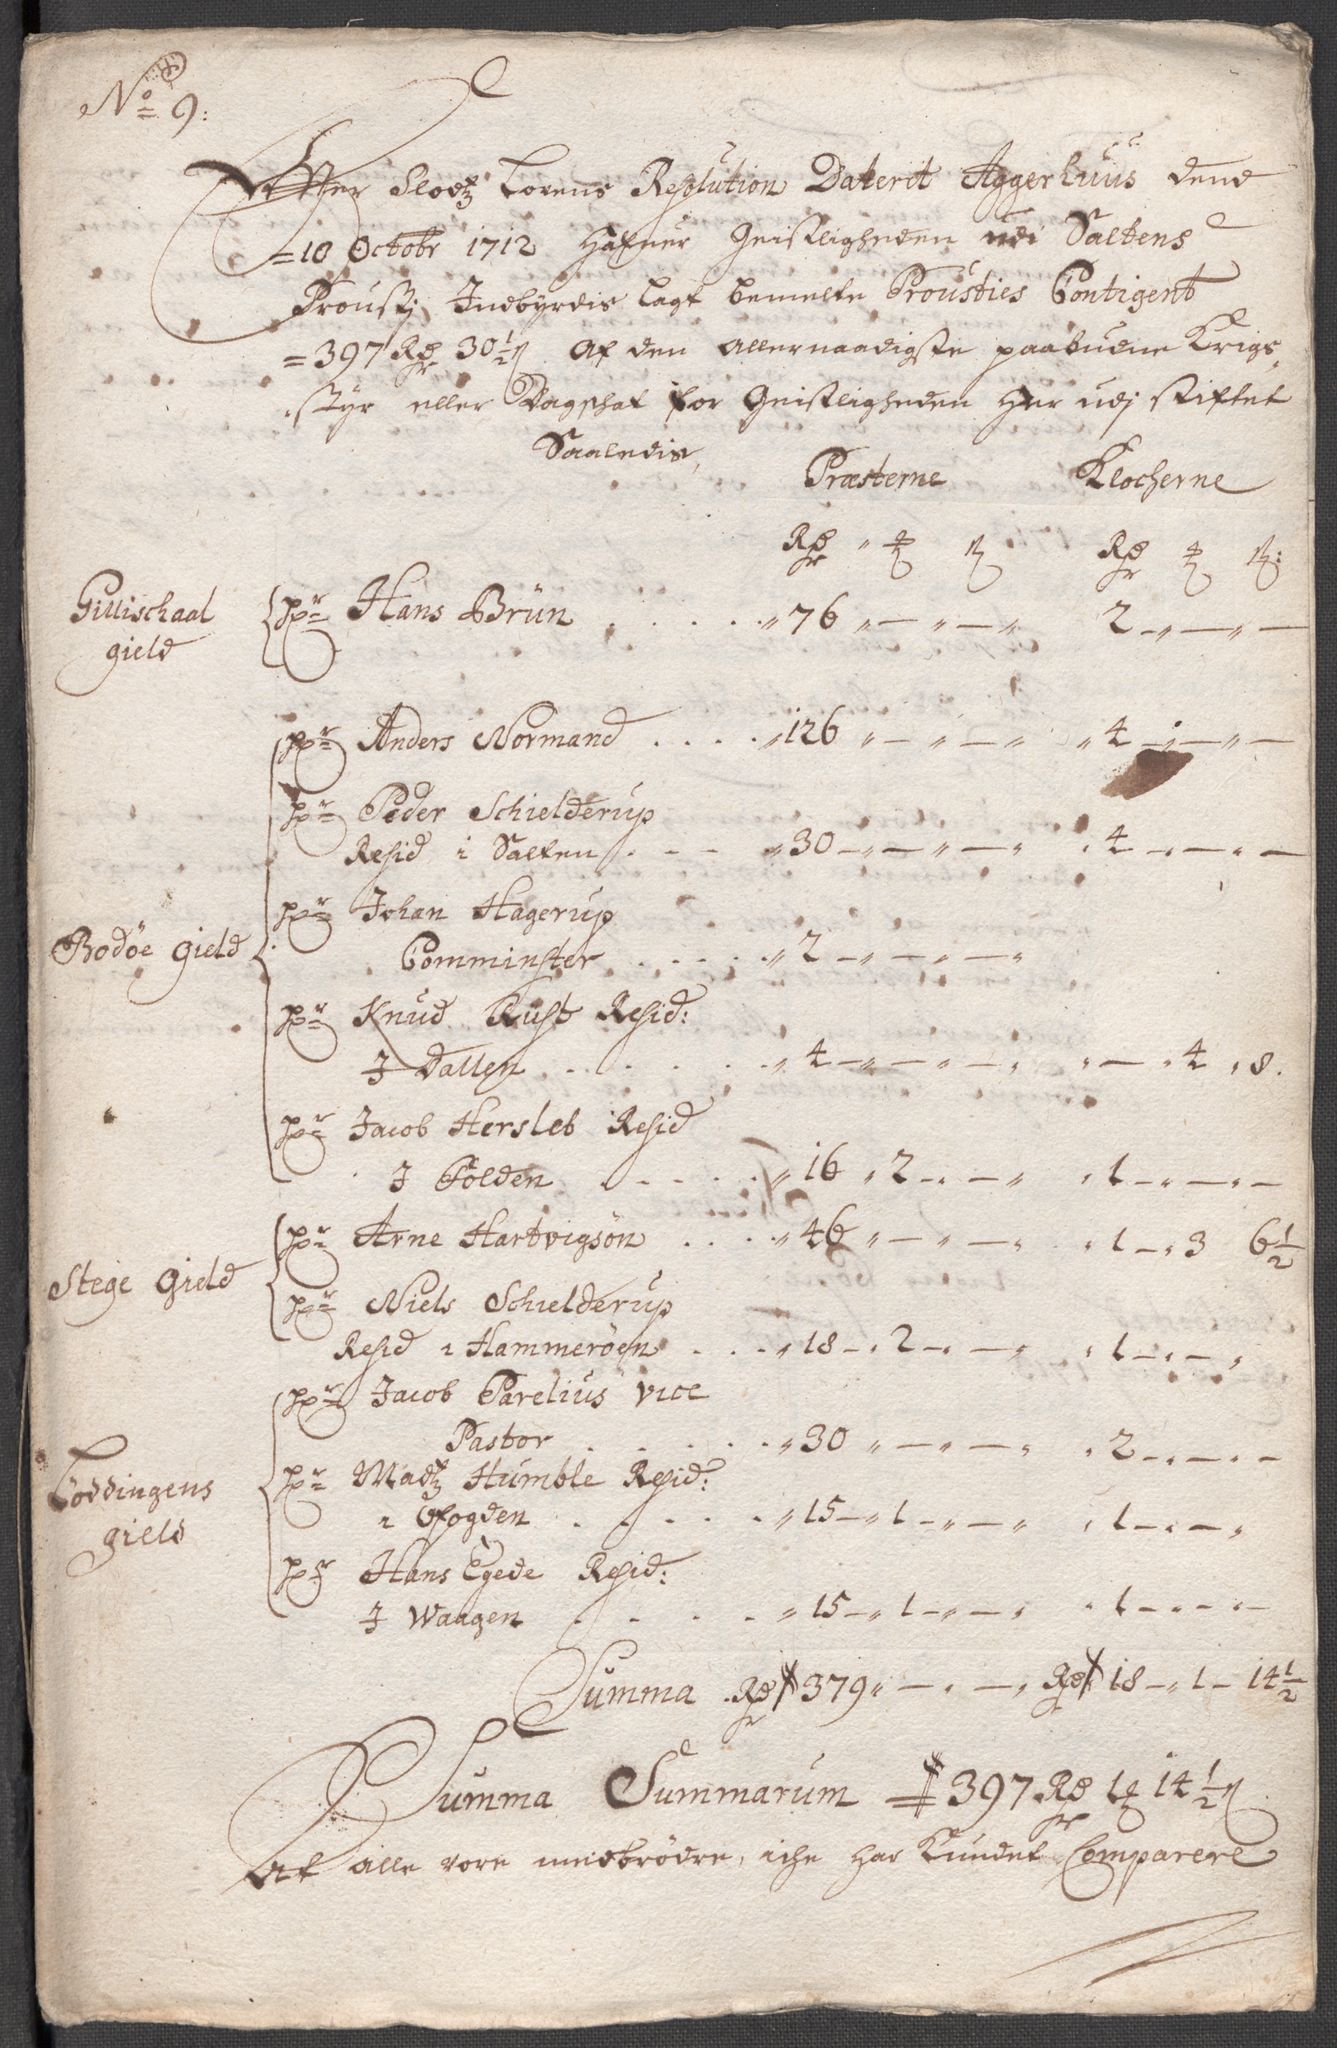 No 9:
Efter Slodtz Lovens Resolution Daterit Aggerhuus dend
10 Octobr 1712 hafuer Geistligheden udi Saltens
Proustj Indbyrdis lagt bemelte Prousties Contigent
397 Rdr 30½ß af den allernaadigste paabudne Krigs
styr eller Dagschat for Geistligheden her udj stiftet
Saaledis,
Præsterne Klocherne
Rdr ß Rdr ß:
Gilleschaal gield
hr Hans Brün . . . . . 76 " — " — " 2 — " — " —
hr Anders Normand . . . . 126 " — " — " 4 — " — " —
hr Peder Schielderup
Resid i Salten . . . 30 — " — " — " 4 — — —
Bodöe gield
hr Johan Hagerup
Comminster . . . . . 2 — " — " —
hr Knud Rust Resid:
I Dallen . . . . . 4 — " — " — " — 4 8.
hr Jacob Hersleb Resid
I Folden . . . . . 16 " 2 — " — " 1 — " — " —
Stege gield
hr Arne Hartvigsön . . . . 46 " — " — " 1 — 3 6½
hr Niels Schielderup
Resid i Hammeröen . . . 18 — 2 — " — " 1 — " — "
hr Jacob Parelius vice
Pastor . . . . . 30 " — " — " 2 — " — " —
Loddingens gield
hr Madtz Humble Resid:
i Ofogden . . . . . 15 — " 1 — " — " 1 — " — "
hr Hans Egede Resid:
I Waagen . . . . 15 — " 1 — " — " 1 — " — " —
Summa Rdr 379 " — " — " Rdr 18 — " 1 — 14½
Summa Summarum 397 Rdr 1 14½ß
Af alle vore medbrödre, iche har Kundet Comparere